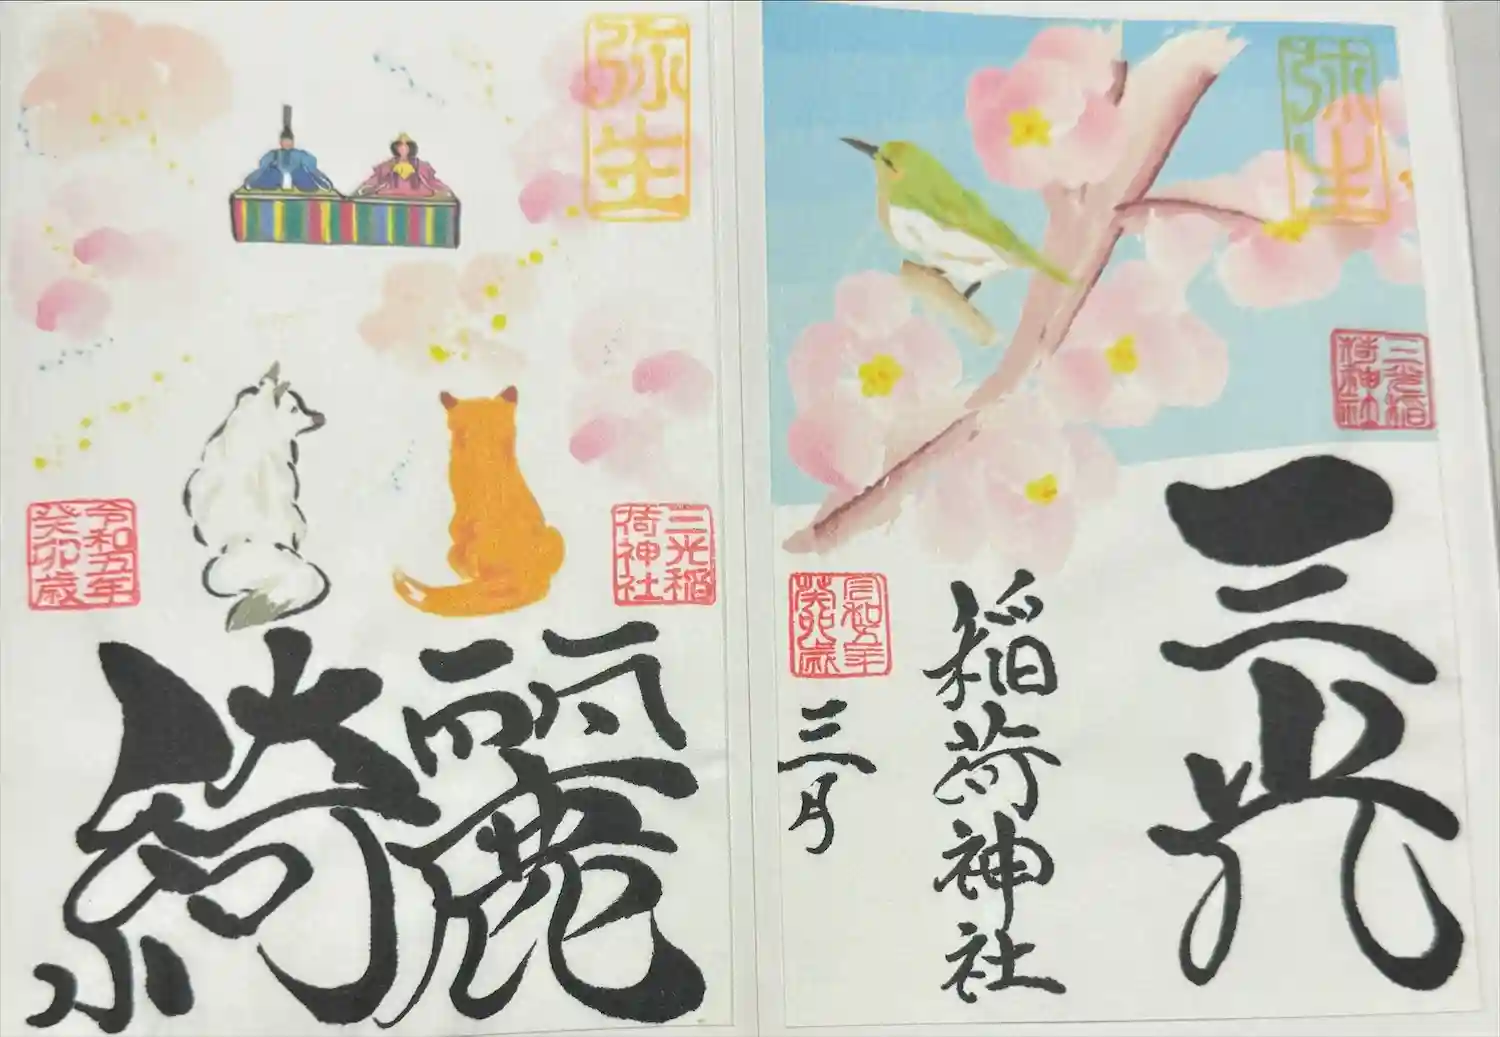 弥生
三光稲
荷神社
令和五年
癸卯歳
綺麗
弥生
三光稲
荷神社
三光
稲荷神社
令和五年
癸卯歳
三月